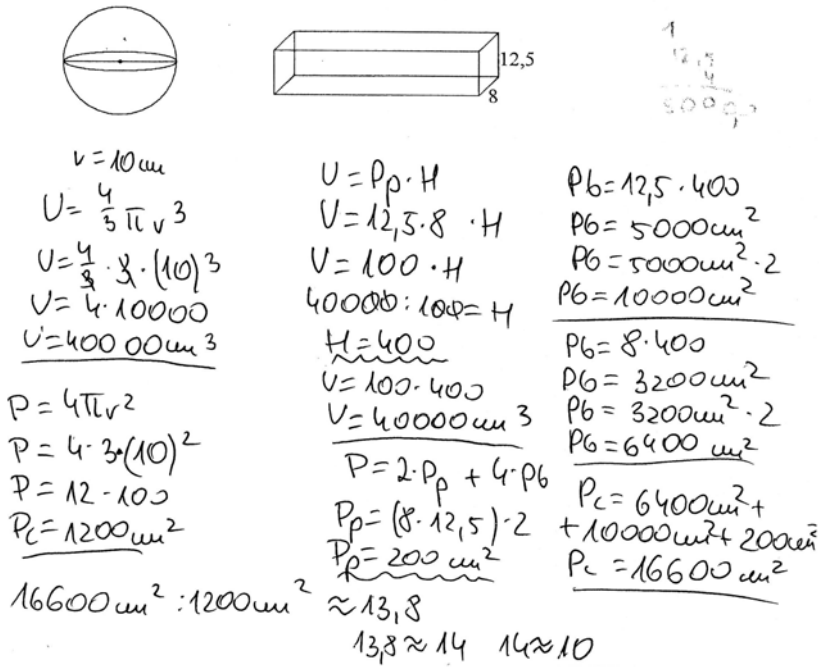 12,5
8
1
12,5
4
500
r = 10 cm
V = 4/3 π r³
V = 4/3 · 3 · (10)³
V = 4 · 10000
V = 400 00 cm³
P = 4πr²
P = 4 · 3 · (10)²
P = 12 · 100
Pc = 1200 cm²
V = Pp · H
V = 12,5 · 8 · H
V = 100 · H
40000 : 100 = H
H = 400
V = 100 · 400
V = 40000 cm³
P = 2 · Pp + 4 · Pb
Pp = (8 · 12,5) · 2
Pp = 200 cm²
Pb = 12,5 · 400
Pb = 5000 cm²
Pb = 5000 cm² · 2
Pb = 10000 cm²
Pb = 8 · 400
Pb = 3200 cm²
Pb = 3200 cm² · 2
Pb = 6400 cm²
Pc = 6400 cm² +
+ 10000 cm² + 200 cm²
Pc = 16600 cm²
16600 cm² : 1200 cm² ≈ 13,8
13,8 ≈ 14 14 ≈ 10